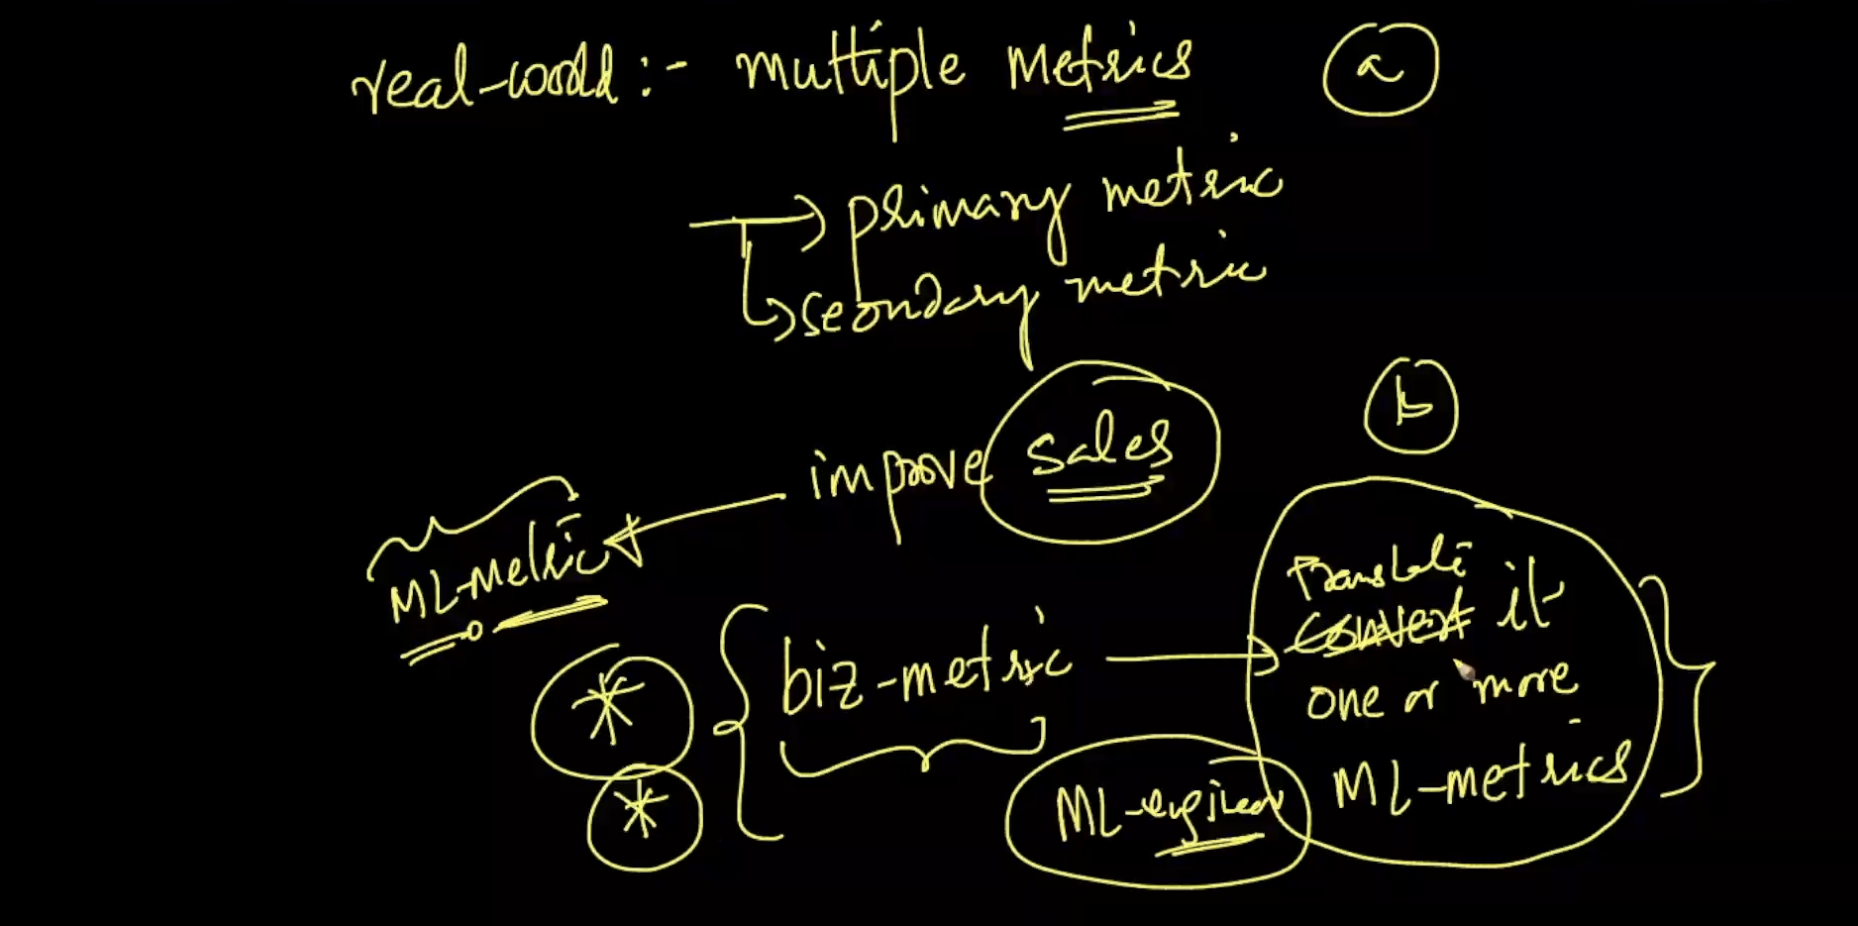 real-world :- multiple metrics
a
primary metric
secondary metric
b
improve sales
ML-metric
Translate
convert it
biz-metric
one or more
ML-metrics
ML-engineer
*
*